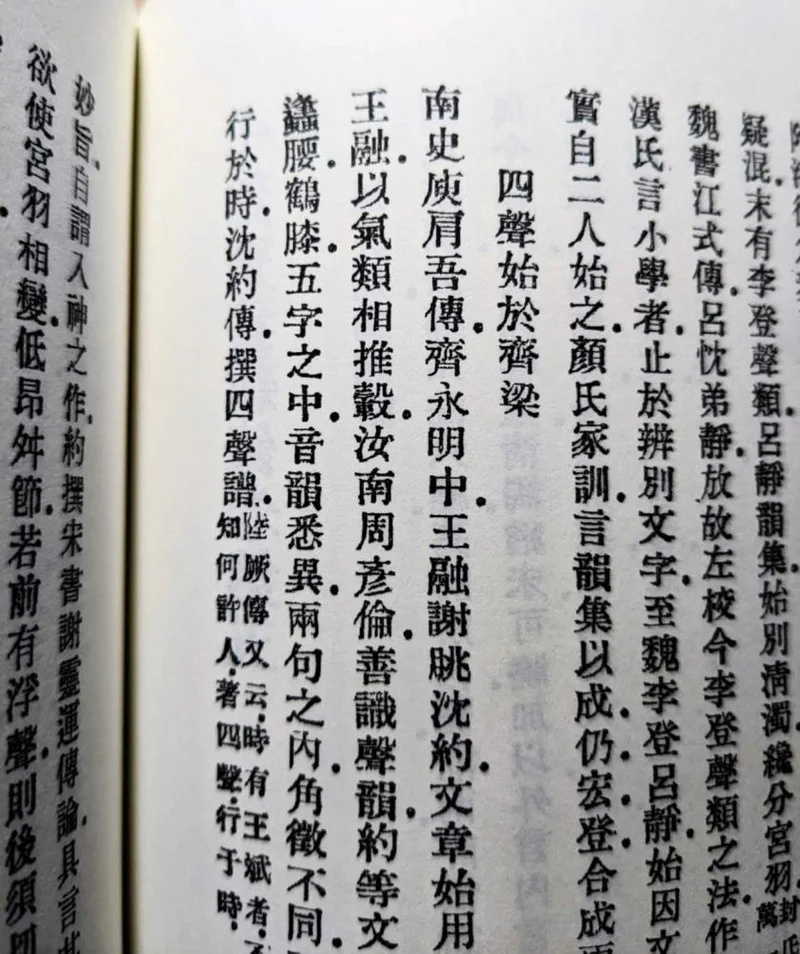 疑混．末有李登聲類．呂靜韻集．始別清濁．纔分宮羽．封氏
萬
魏書江式傳．呂忱弟靜．放故左校令李登聲類之法．作
漢氏言小學者．止於辨別文字．至魏李登呂靜．始因文
實自二人始之．顏氏家訓．言韻集以成．仍宏登合成
四聲始於齊梁
南史庾肩吾傳．齊永明中．王融謝眺沈約．文章始用
王融．以氣類相推轂．汝南周彥倫．善識聲韻．約等文
蠭腰鶴膝．五字之中．音韻悉異．兩句之內．角徵不同．
行於時．沈約傳．撰四聲譜．陸厥傳又云．時有王斌者．不
知何許人．著四聲．行于時．
妙旨．自謂入神之作．約撰宋書謝靈運傳論．具言其
欲使宮羽相變．低昂舛節．若前有浮聲．則後須切